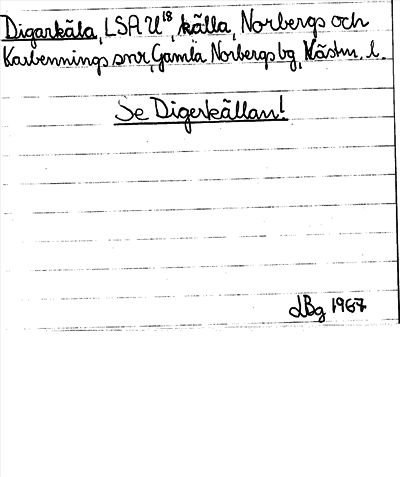 Digarkäla, LSA U18, källa, Norbergs och
Karbennings snr, Gamla Norbergs bg, Västm. l.
Se Digerkällan!
dBg 1967